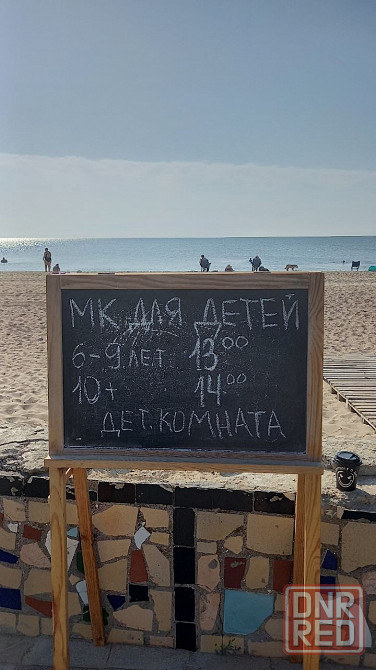 МК ДЛЯ ДЕТЕЙ
6-9 ЛЕТ 13⁰⁰
10+ 14⁰⁰
ДЕТ. КОМНАТА
DNR
RED